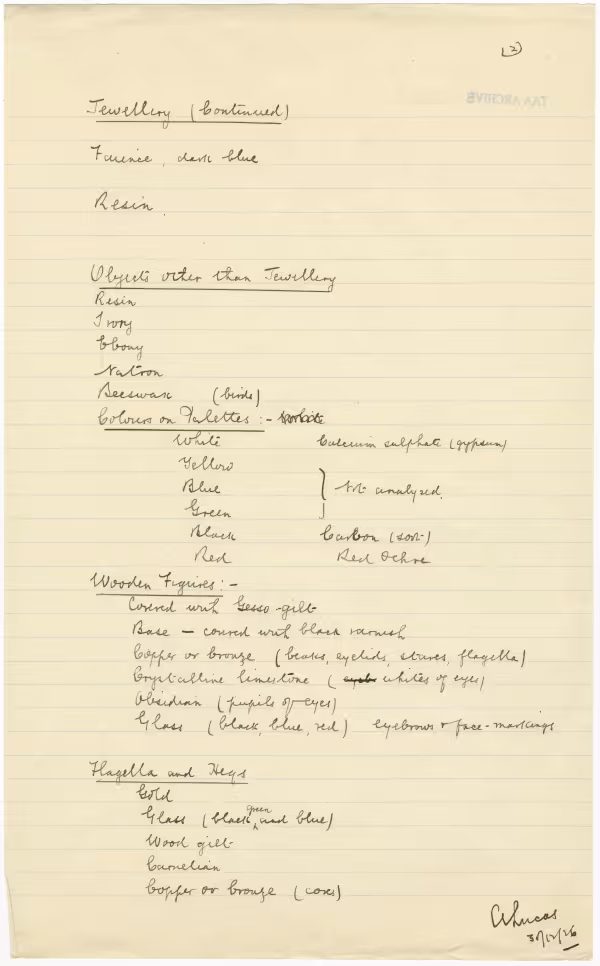 (2)
TAA ARCHIVE
Jewellery (Continued)
Faience, dark blue
Resin.
Objects other than Jewellery
Resin
Ivory
Ebony
Natron
Beeswax (birds)
Colours on Palettes :-
White Calcium sulphate (gypsum)
Yellow
Blue } Not analyzed.
Green
Black Carbon (soot)
Red Red Ochre
Wooden Figures :-
Covered with Gesso-gilt
Base — covered with black varnish
Copper or bronze (beaks, eyelids, staves, flagella)
Crystalline limestone ( whites of eyes)
Obsidian (pupils of eyes)
Glass (black, blue, red) eyebrows & face-markings
Flagella and Heqs
Gold
Glass (black, green and blue)
Wood gilt
Carnelian
Copper or bronze (cores)
A Lucas
30/12/26